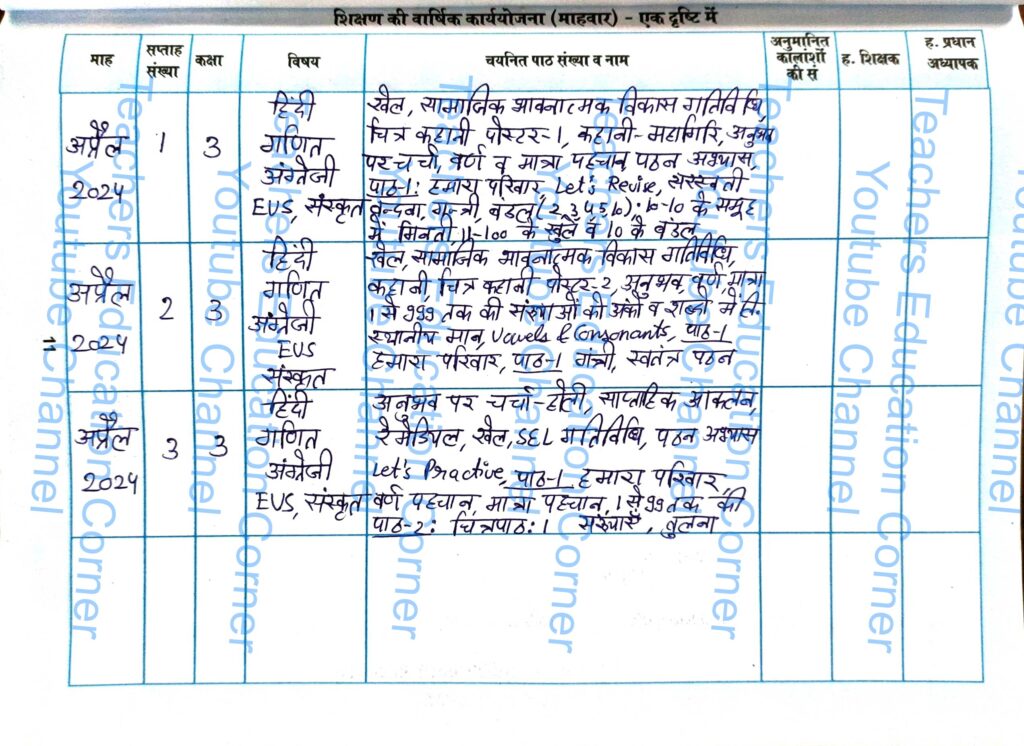 शिक्षण की वार्षिक कार्ययोजना (माहवार) - एक दृष्टि में
माह
सप्ताह संख्या
कक्षा
विषय
चयनित पाठ संख्या व नाम
अनुमानित कालांशों की सं
ह. शिक्षक
ह. प्रधान अध्यापक
अप्रैल
2024
1
3
हिंदी
गणित
अंग्रेजी
EVS, संस्कृत
खेल, सामाजिक भावनात्मक विकास गतिविधि,
चित्र कहानी पोस्टर-1, कहानी-महागिरि, अनुभव
पर चर्चा, वर्ण व मात्रा पहचान, पठन अभ्यास,
पाठ-1: हमारा परिवार, Let's Revise, सरस्वती
वन्दना, गन्त्री, बंडल (2,3,4,5,6) 10-10 के समूह
में गिनती, 11-100 के खुले व 10 के बंडल
अप्रैल
2024
2
3
हिंदी
गणित
अंग्रेजी
EVS
संस्कृत
खेल, सामाजिक भावनात्मक विकास गतिविधि,
कहानी, चित्र कहानी पोस्टर-2, अनुभव, वर्ण, मात्रा
1 से 999 तक की संख्याओं की अंकों व शब्दों में गि.
स्थानीय मान, Vowels & Consonants, पाठ-1
हमारा परिवार, पाठ-1 गंत्री, स्वतंत्र पठन
अप्रैल
2024
3
3
हिंदी
गणित
अंग्रेजी
EVS, संस्कृत
अनुभव पर चर्चा-होली, साप्ताहिक आकलन,
रेमेडियल, खेल, SEL गतिविधि, पठन अभ्यास
Let's Practive, पाठ-1 हमारा परिवार,
वर्ण पहचान, मात्रा पहचान, 1 से 99 तक की
पाठ-2: चित्रपाठ: 1 संख्याएँ, तुलना
11
Teachers Education Corner
Youtube Channel
Teachers Education Corner
Youtube Channel
Teachers Education Corner
Youtube Channel